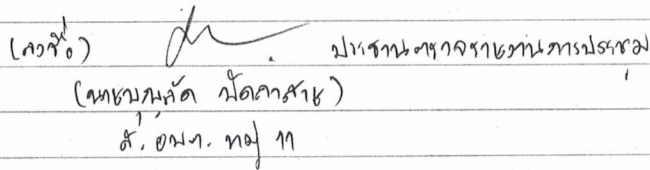 (ลงชื่อ) ประธานตรวจรายงานการประชุม
(นายบุญลัด ปัดลาสาย)
ส. อบต. หมู่ 11